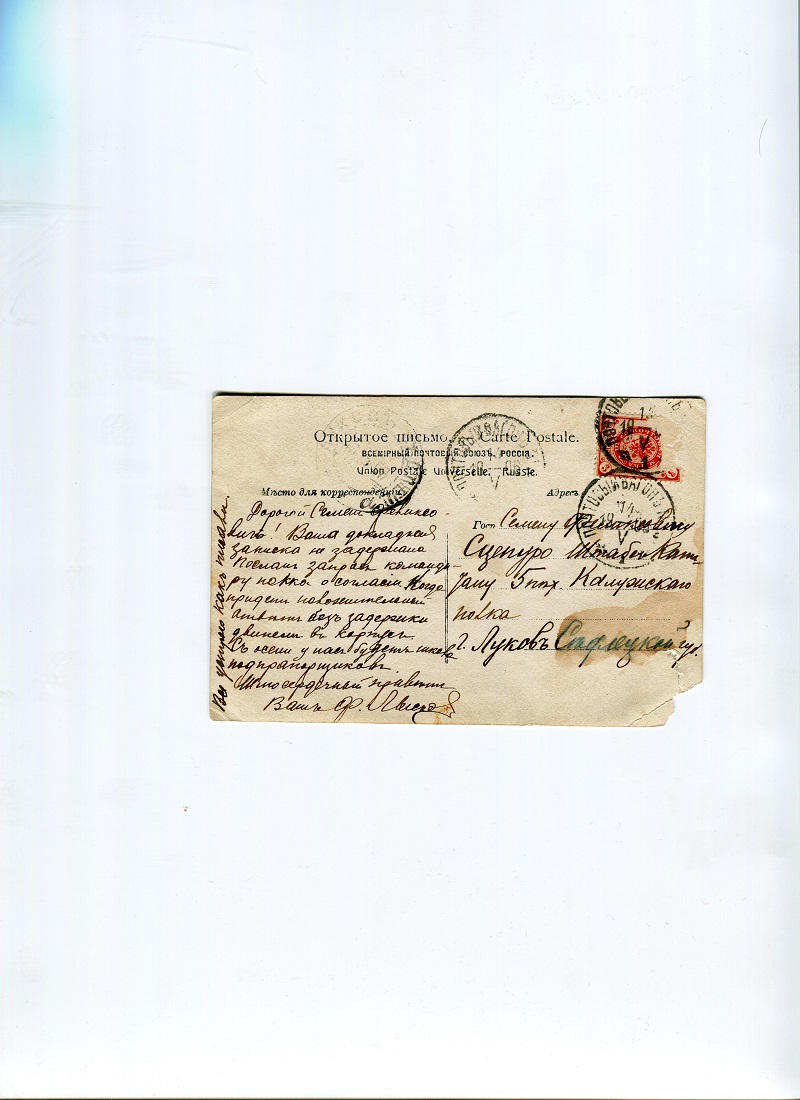 Открытое письмо. — Carte Postale.
ВСЕМІРНЫЙ ПОЧТОВЫЙ СОЮЗЪ. РОССІЯ.
Union Postale Universelle. Russie.
Мѣсто для корреспонденціи.
Адресъ
ПОЧТОВЫЙ ВАГОНЪ
ПОЧТОВЫЙ ВАГОНЪ
Дорогой Семенъ
вичъ! Ваша докладная
записка не задержана
Посланъ запросъ команди-
ру полка о согласіи. Когда
придетъ положительный
отвѣтъ безъ задержки
двинемъ въ корпусъ.
Съ осени у насъ будетъ школа
подпрапорщиковъ.
привѣтъ
Вашъ Ф.
Гос. Семену
Сцепуро Штабсъ-Капи-
тану 5 пѣх. Калужскаго
полка
г. Луковъ Сѣдлецкой губ.